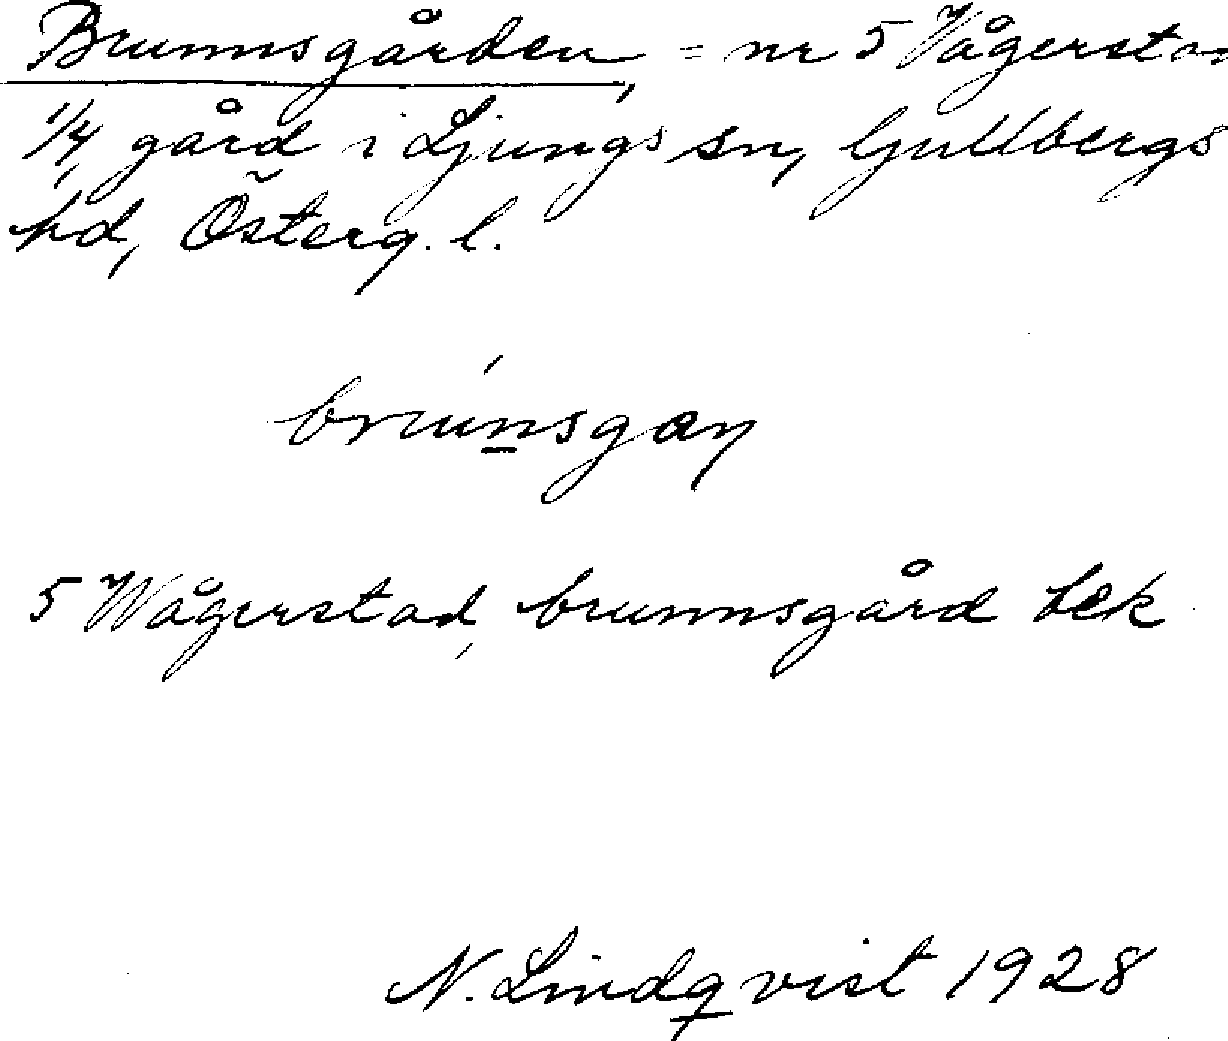 Brunnsgården, = nr 5 Vågerstad
1/4 gård i Ljungs sn, Gullbergs
hd, Österg. l.
5 Wågerstad, brunnsgård bek
N. Lindqvist 1928